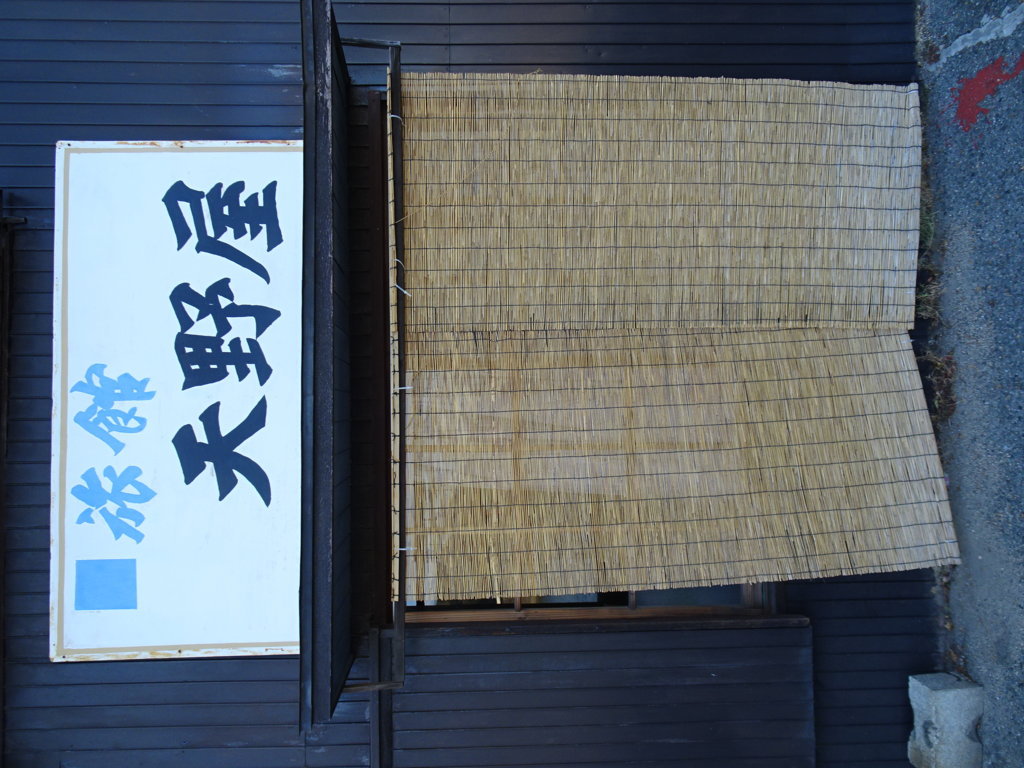 旅館
天野屋